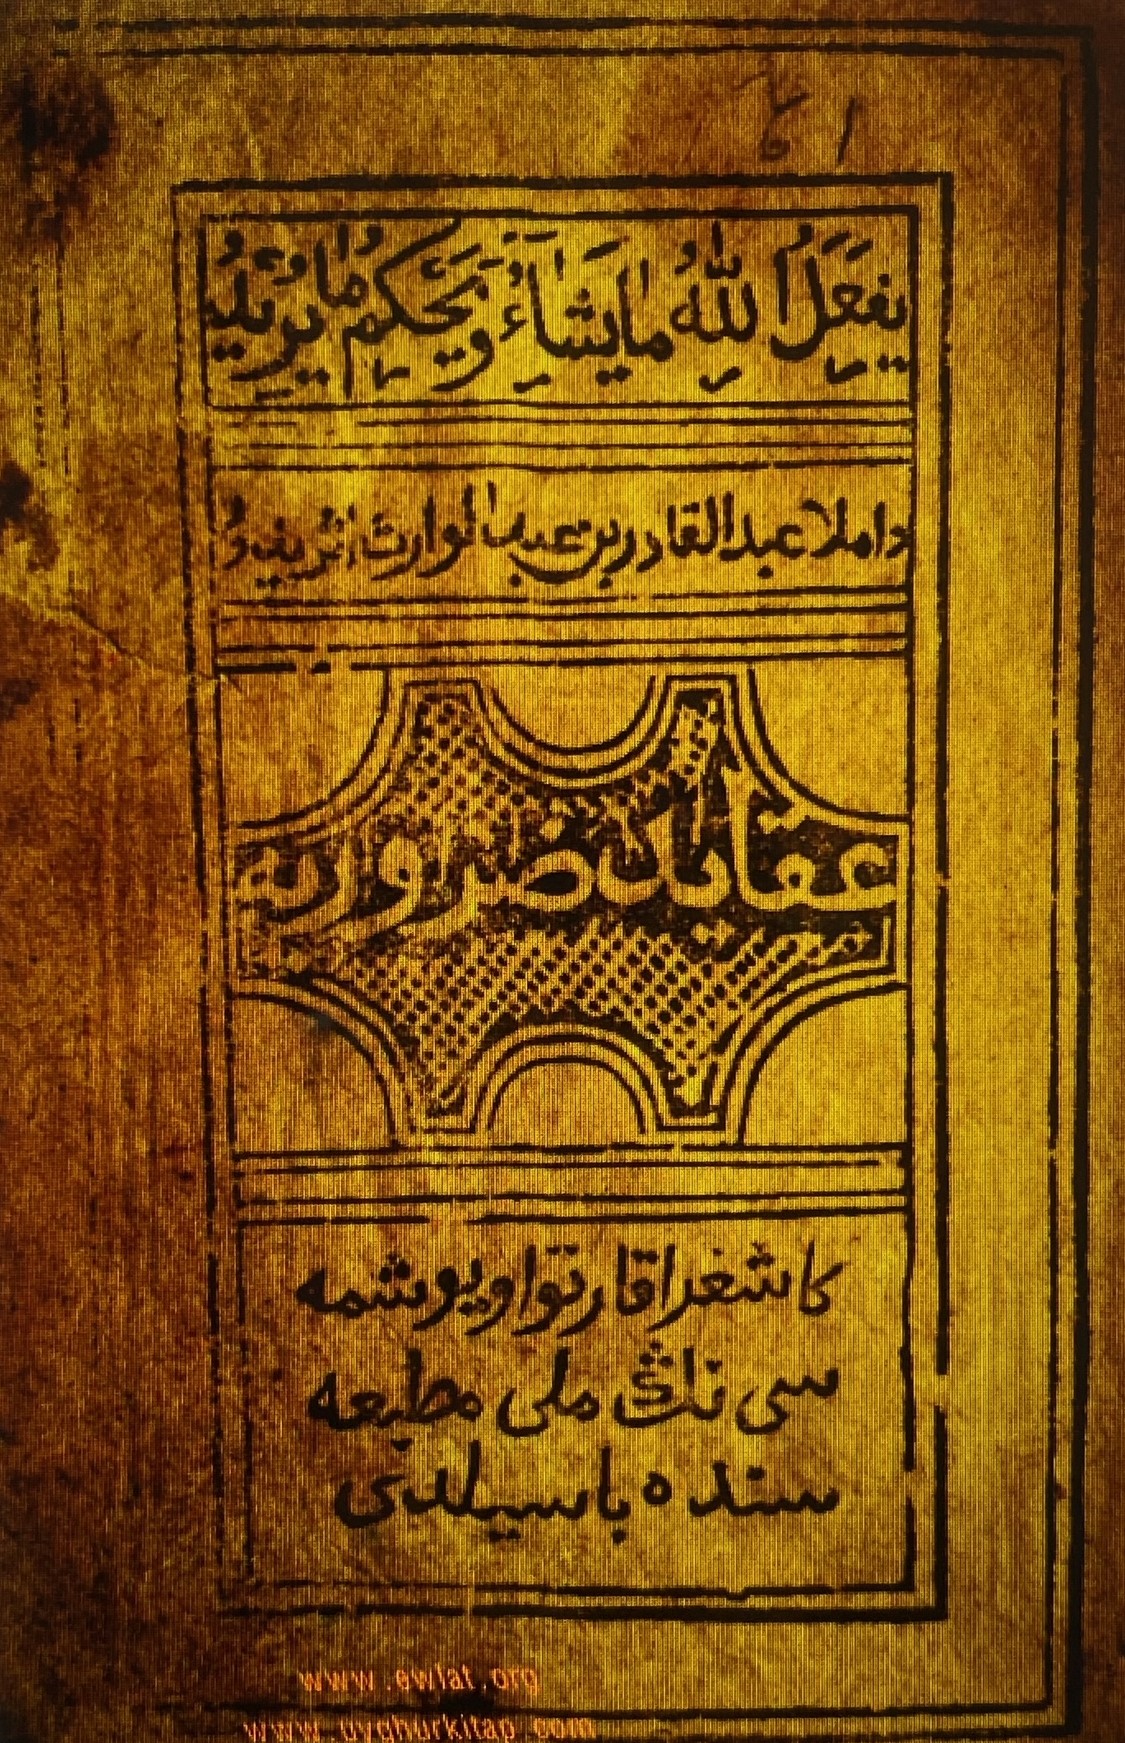 يَفعَلُ اللّٰهُ مَا يَشَاءُ وَيَحْكُمُ مَا يُرِيْدُ
داملا عبدالقادر بن عبدالوارث
عقايد ضروريه
كاشغر اقارتو اويوشمه
سى نىڭ ملى مطبعه
سنده باسيلدى
www.ewlat.org
www.uyghurkitap.com